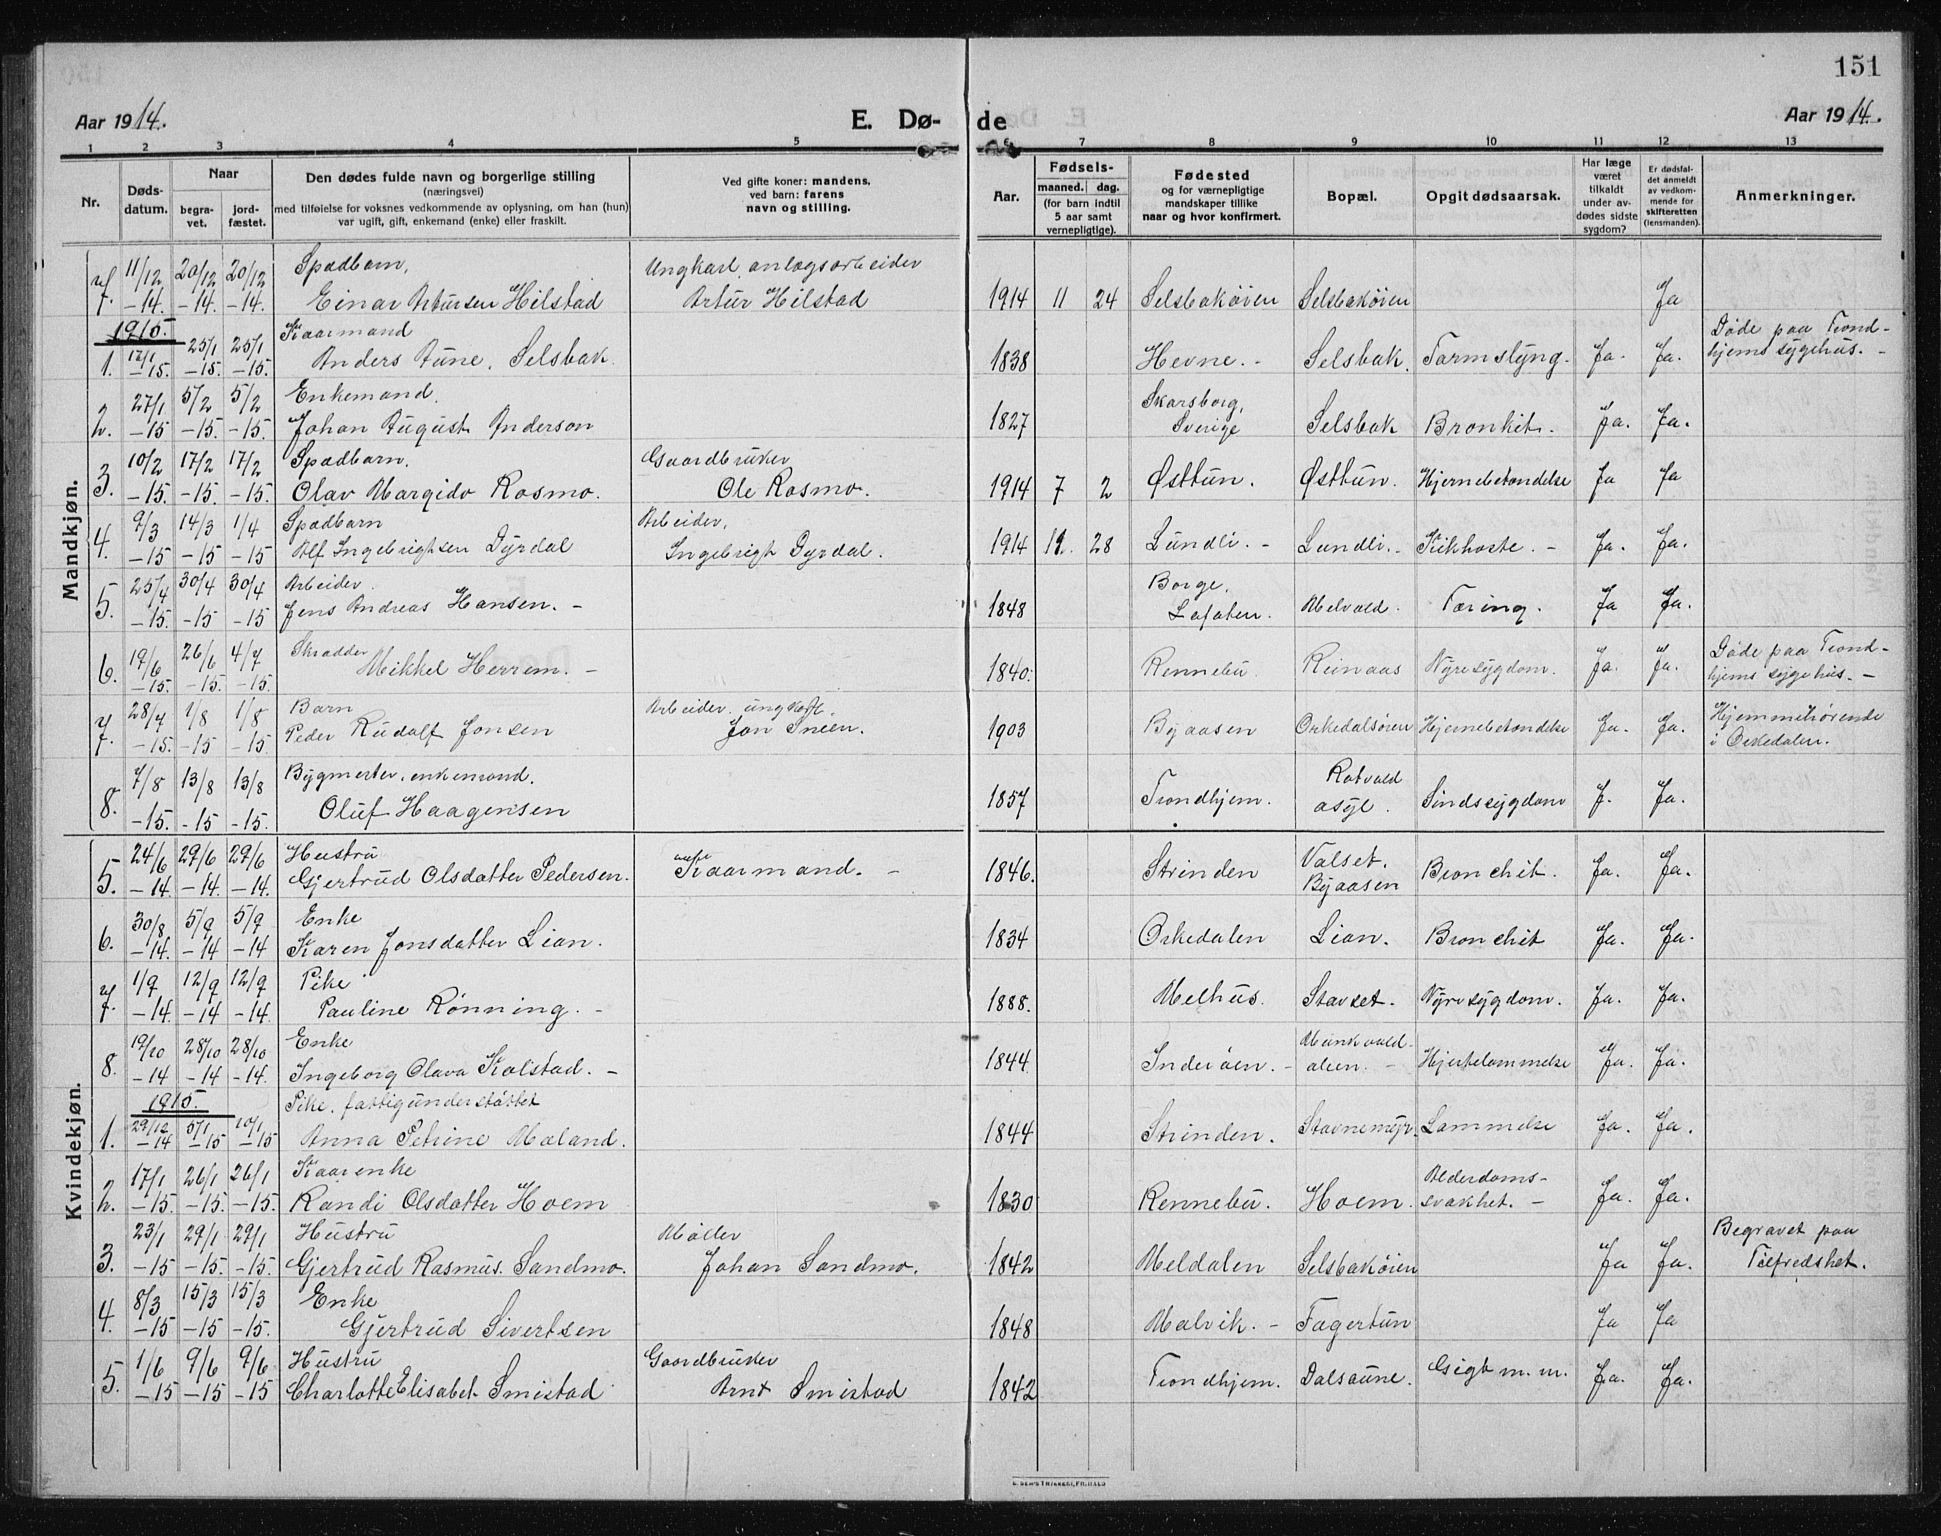 151
Aar 1914.
E. Dø-
de
Aar 1914.
1 2 3 4 5 6 7 8 9 10 11 12 13
Nr.
Døds-
datum.
Naar
begra-
vet.
jord-
fæstet.
Den dødes fulde navn og borgerlige stilling
(næringsvei)
med tilføielse for voksnes vedkommende av oplysning, om han (hun)
var ugift, gift, enkemand (enke) eller fraskilt.
Ved gifte koner: mandens,
ved barn: farens
navn og stilling.
Aar.
Fødsels-
maaned. dag.
(for barn indtil
5 aar samt
vernepligtige).
Fødested
og for værnepligtige
mandskaper tillike
naar og hvor konfirmert.
Bopæl.
Opgit dødsaarsak.
Har læge
været
tilkaldt
under av-
dødes sidste
sygdom?
Er dødsfal-
det anmeldt
av vedkom-
mende for
skifteretten
(lensmanden).
Anmerkninger.
Mandkjøn.
11/12 20/12 20/12 Spædbarn, Ungkarl, anlægsarbeider
7. -14. -14. -14. Einar Artursen Hilstad Artur Hilstad 1914 11 24 Selsbakøien Selsbakøien Ja
1915. Kaarmand Døde paa Trond-
1. 12/1 -15. 25/1 -15. 25/1 -15. Anders Aune, Selsbak. 1838 Hevne. - Selsbak. Tarmslyng. Ja. Ja. hjems sygehus. -
27/1 5/2 5/2 Enkemand. Skarsborg,
2. -15 -15. -15. Johan August Anderson 1827 Sverige Selsbak Bronkit. Ja. Ja.
10/2 17/2 17/2 Spædbarn. Gaardbruker
3. -15. -15. -15. Olav Margido Rosmo. Ole Rosmo. 1914 7 2 Østtun. Østtun. Hjernebetændelse Ja Ja
9/3 14/3 1/4 Spædbarn Arbeider,
4. -15 -15 -15 Alf Ingebrigtsen Dyrdal Ingebrigt Dyrdal. 1914 11. 28 Lundli. - Lundli. - Kikhoste. - Ja. Ja.
25/4 30/4 30/4 Arbeider. Borge,
5. -15. -15 -15 Jens Andreas Hansen. - 1848 Lofoten. Melvold. Tæring. Ja Ja.
19/6 26/6 4/7 Skrædder Døde paa Trond-
6. -15. -15. -15. Mikkel Herrem. - 1840. Rennebu Reinaas Nyresygdom. Ja. Ja. hjems sygehus. -
28/7 1/8 1/8 Barn Arbeider, ungkarl. Hjemmehørende
7. -15. -15 -15 Peder Rudolf Jonsen Jon Sneen. 1903 Byaasen Orkedalsøren Hjernebetændelse Ja. Ja. i Orkedalen.
7/8 13/8 13/8 Bygmester, enkemand. Rotvold
8. -15. -15 -15. Oluf Haagensen 1857 Trondhjem. asyl. Sindssygdom J. Ja.
Kvindekjøn.
24/6 29/6 29/6 Hustru Valset.
5. -14. -14. -14. Gjertrud Olsdatter Pedersen. Kaarmand. - 1846. Strinden Byaasen Bronchit. Ja. Ja.
30/8 5/9 5/9 Enke
6. -14. -14 -14 Karen Jonsdatter Lian. 1834 Orkedalen Lian. Bronchit Ja. Ja.
1/9 12/9 12/9 Pike
7. -14. -14 -14. Pauline Rønning. - 1888. Melhus. Stavset. Nyresygdom. Ja. Ja.
19/10 28/10 28/10 Enke Munkvold-
8. -14 -14 -14. Ingeborg Olava Kolstad. - 1844 Inderøen. - alsen. - Hjertelammelse Ja. Ja.
1915. Pike, fattigunderstøttet
1. 29/12 -14 5/1 -15 10/1 -15 Anna Petrine Moland. 1844 Strinden. Stavnemyr. Lammelse Ja. Ja.
17/1 26/1 26/1 Kaarenke Alderdoms-
2. -15. -15. -15. Randi Olsdatter Hoem 1830 Rennebu. Hoem. svakhet. - Ja. Ja.
23/1 29/1 29/1 Hustru Møller Begravet paa
3. -15 -15. -15. Gjertrud Rasmus. Sandmo. Johan Sandmo. 1842 Meldalen Selsbakøien Ja Ja. Tilfredshet.
8/3 15/3 15/3 Enke
4. -15 -15 -15. Gjertrud Sivertsen 1848 Malvik. - Fagertun Ja Ja
1/6 9/6 9/6 Hustru Gaardbruker
5. -15 -15 -15 Charlotte Elisabet Smistad Arnt Smistad 1842 Trondhjem. Dalsaune. Gigt m. m. Ja. Ja.